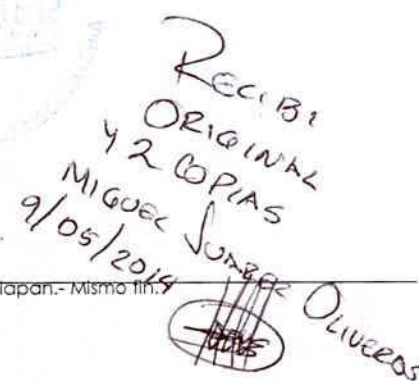 RECIBI
ORIGINAL
Y 2 COPIAS
MIGUEL JUAREZ OLIVEROS
9/05/2014
iapan.- Mismo fin.